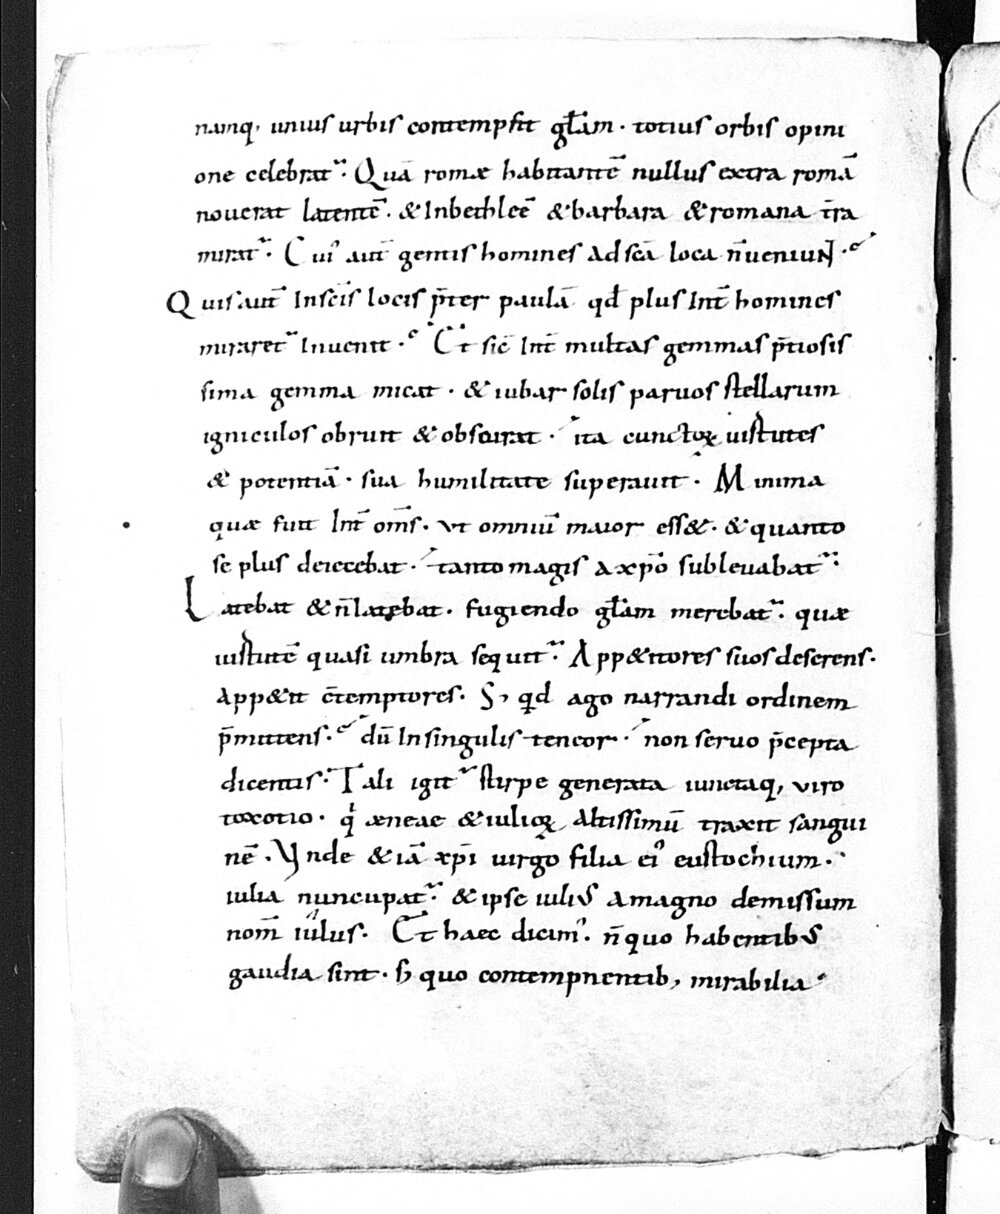 namq; unius urbis contempsit głam · totius orbis opini
one celebrat᷑ · Quā romæ habitantē nullus extra romā
nouerat latentē · & Inbethleē & barbara & romana t̄ra
mirat᷑ · Cui᾿ aut̄ gentis homines ad scā loca n̄ueniunt ·
Quis aut̄ Insc̄is locis p̄ter paulā qđ plus Int̄ homines
miraret᷑ Inuenit · Et sic̄ Int̄ multas gemmas p̄tiosis
sima gemma micat · & iubar solis paruos stellarum
igniculos obruit & obscurat · ita cunctoꝝ uirtutes
& potentiā · sua humilitate superauit · Minima
quæ fuit Int̄ om̄s · vt omniū maior ess& · & quanto
se plus deiecebat · tanto magis a xp̄o subleuabat᷑ ·
Latebat & n̄ latebat · fugiendo głam merebat᷑ · quæ
uirtutē quasi umbra sequit᷑ · App&itores suos deserens ·
App&it c̄temptores · S; qđ ago narrandi ordinem
p̄mittens · dū Insingulis teneor · non seruo p̄cepta
dicentis · Tali igit᷑ stirpe generata iunctaq; viro
toxotio · qͥ æneae & iulioꝝ altissimū traxit sangui
nē · Vnde & iā xp̄i uirgo filia ei᾿ eustochium ·
iulia nuncupat᷑ · & ipse iulius a magno demissum
nom̄ iulus · Et haec dicim᾿ · n̄ quo habentibus
gaudia sint · s; quo contempnentib; mirabilia ·